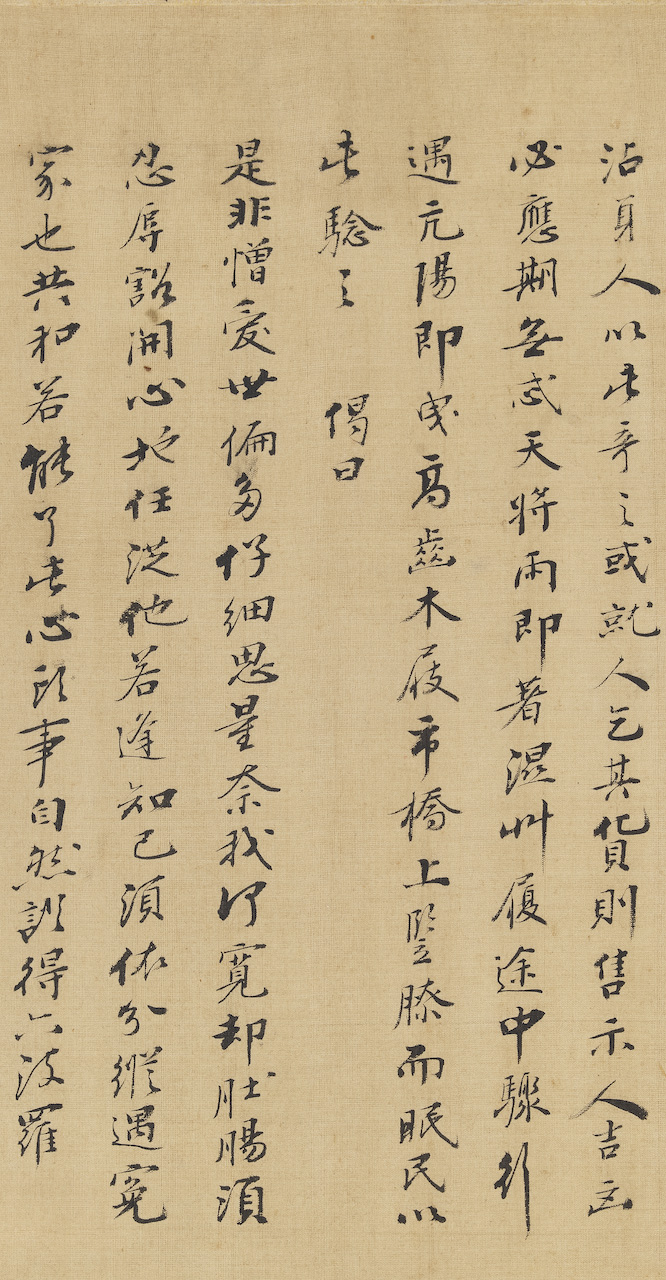 沾身人以此奇之或就人乞其貨則售示人吉凶
必應期無忒天將雨即著濕艸履途中驟行
遇亢陽即曳高齒木屐市橋上豎膝而眠民以
此騐之　偈曰
是非憎愛世偏多仔細思量奈我何寬却肚腸須
忍辱豁開心地任從他若逢知己須依分縱遇冤
家也共和若能了此心頭事自然證得六波羅